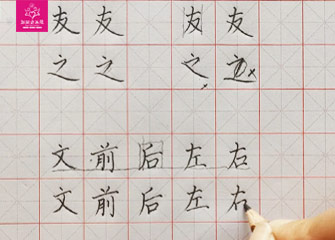 友友友友
之之之之
文前后左右
文前后左右